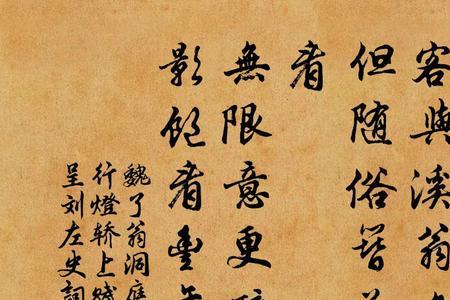 客與溪翁
但随俗簪
看
無限意更
影飽看豐年
魏了翁洞庭
行燈轎上賦
呈刘左史詞